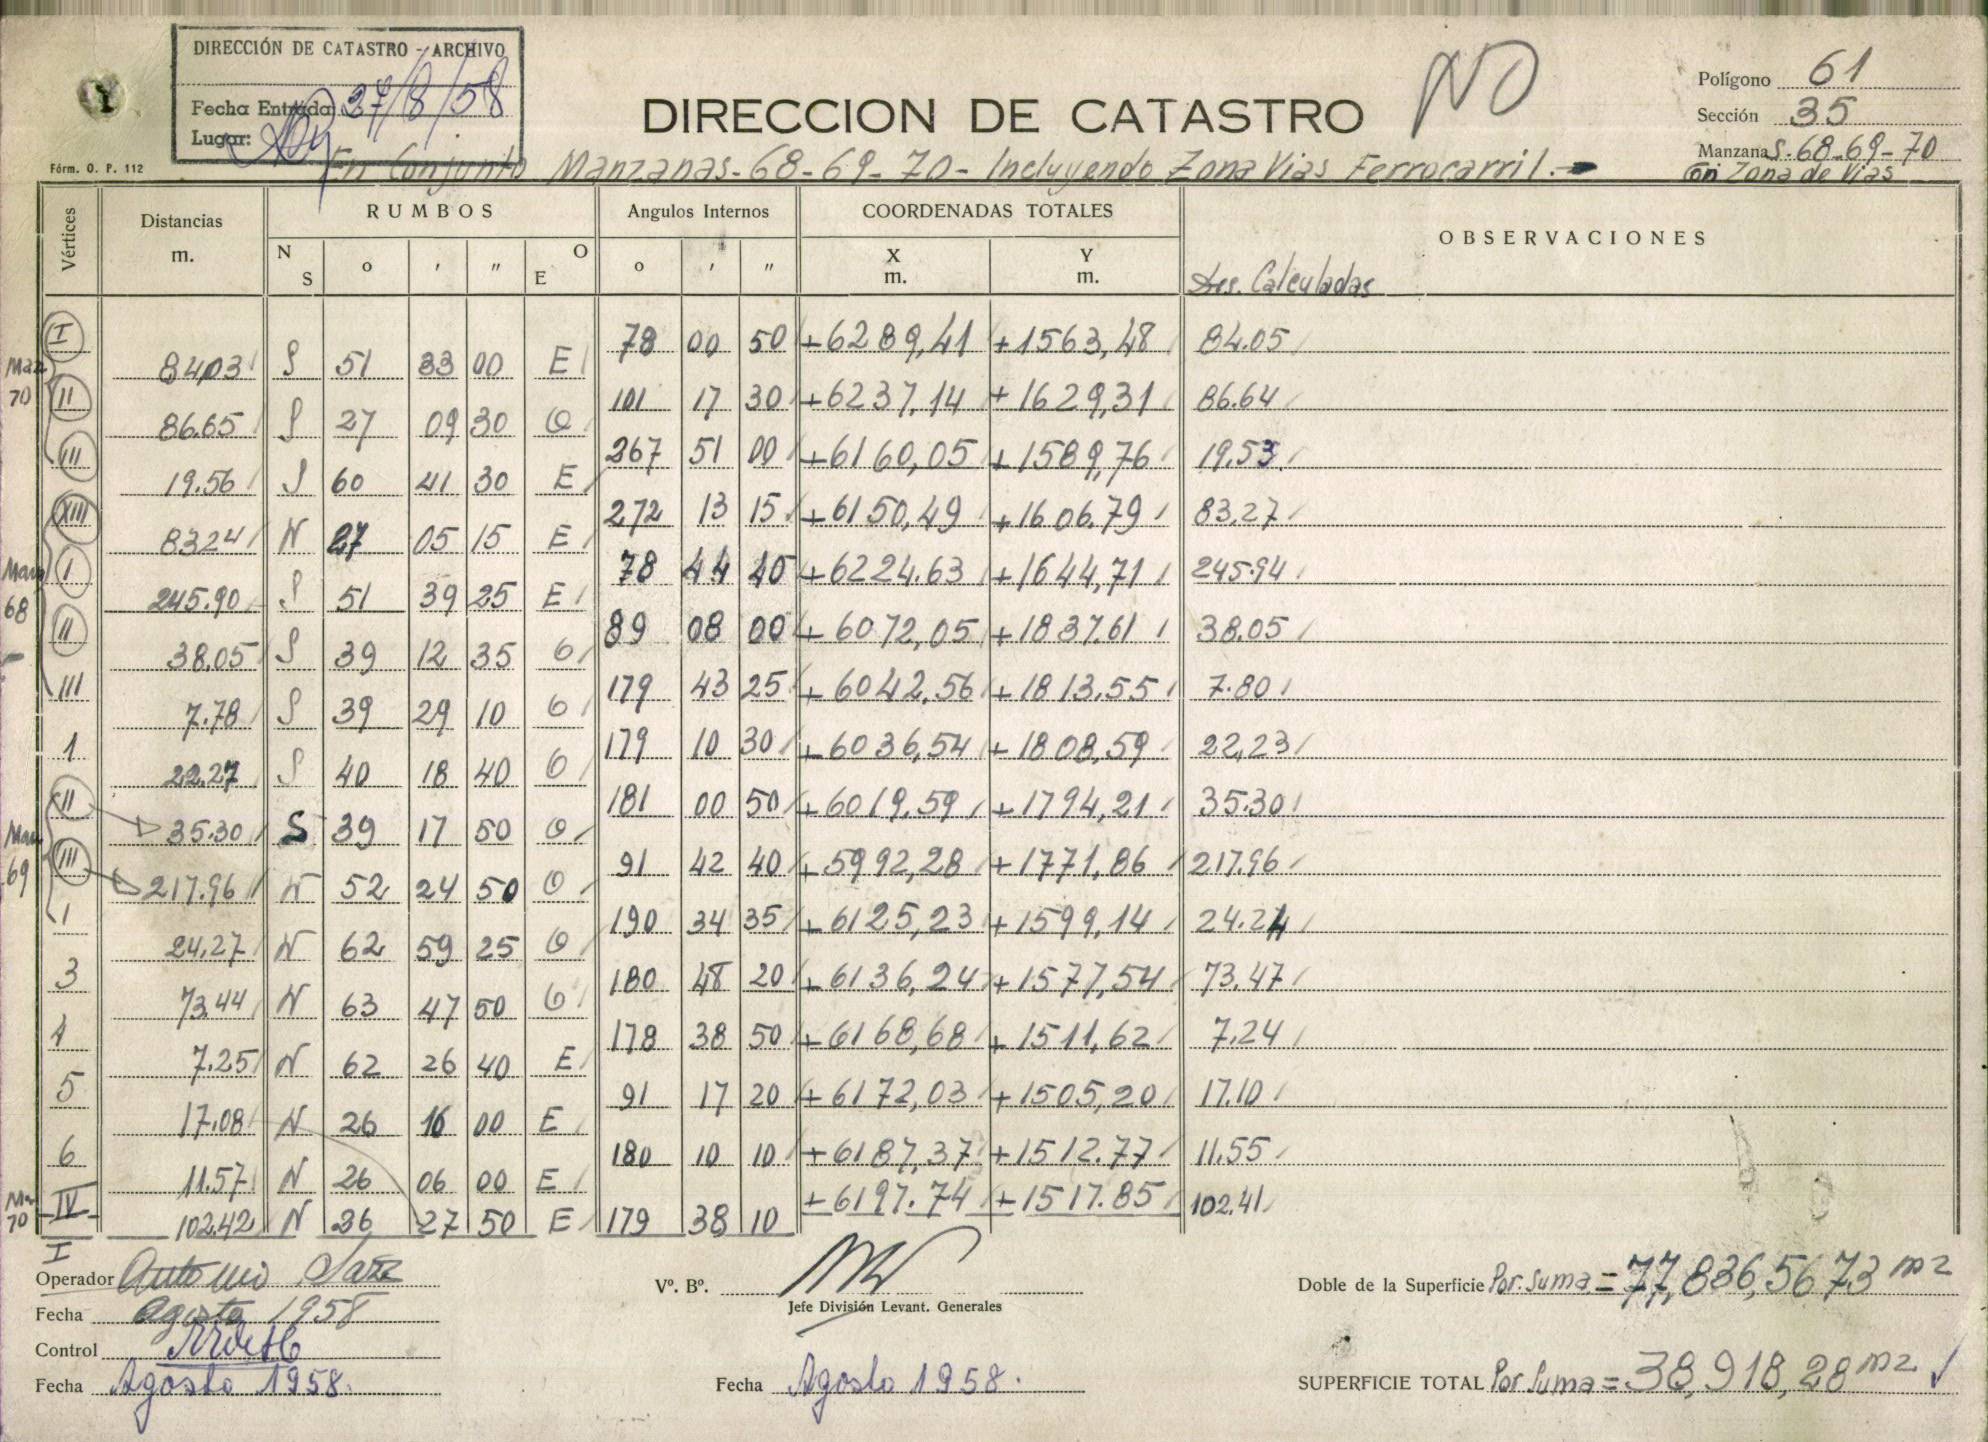 DIRECCIÓN DE CATASTRO - ARCHIVO
Fecha Entrada 27/8/58
Lugar:
Fórm. O. P. 112
DIRECCION DE CATASTRO
NO
Polígono 61
Sección 35
Manzana s. 68-69-70
Con Zona de Vias
En Conjunto Manzanas-68-69-70- Incluyendo Zona Vias Ferrocarril.-
Vértices Distancias m. RUMBOS N S o ' " O E Angulos Internos o ' " COORDENADAS TOTALES X m. Y m. OBSERVACIONES
Dtes. Calculadas
I 78 00 50 +6289,41 +1563,48 84.05
Man 70 84,03 S 51 33 00 E
II 101 17 30 +6237,14 +1629,31 86.64
86.65 S 27 09 30 O
III 267 51 00 +6160,05 +1589,76 19.53
19.56 S 60 41 30 E
XIII 272 13 15 +6150,49 +1606.79 83,27
83.24 N 27 05 15 E
Man 68 I 78 44 40 +6224.63 +1644,71 245.94
245.90 S 51 39 25 E
II 89 08 00 +6072,05 +1837.61 38.05
38.05 S 39 12 35 O
III 179 43 25 +6042,56 +1813.55 7.80
7.78 S 39 29 10 O
1 179 10 30 +6036,54 +1808,59 22,23
22.27 S 40 18 40 O
II 181 00 50 +6019,59 +1794,21 35.30
Man 69 35.30 S 39 17 50 O
III 91 42 40 +5992,28 +1771,86 217.96
217.96 N 52 24 50 O
I 190 34 35 +6125,23 +1599,14 24.24
24.27 N 62 59 25 O
3 180 48 20 +6136,24 +1577,54 73,47
73.44 N 63 47 50 O
4 178 38 50 +6168,68 +1511,62 7.24
7.25 N 62 26 40 E
5 91 17 20 +6172,03 +1505,20 17.10
17.08 N 26 16 00 E
6 180 10 10 +6187,37 +1512.77 11.55
11.57 N 26 06 00 E
+6197.74 +1517.85 102.41
70 IV 102.42 N 26 27 50 E 179 38 10
I
Operador Antonio
Fecha Agosto 1958
Control
Fecha Agosto 1958.
Vº. Bº.
Jefe División Levant. Generales
Fecha Agosto 1958.
Doble de la Superficie Por. Suma = 77,836,5673 m2
SUPERFICIE TOTAL Por Suma = 38,918,28 m2